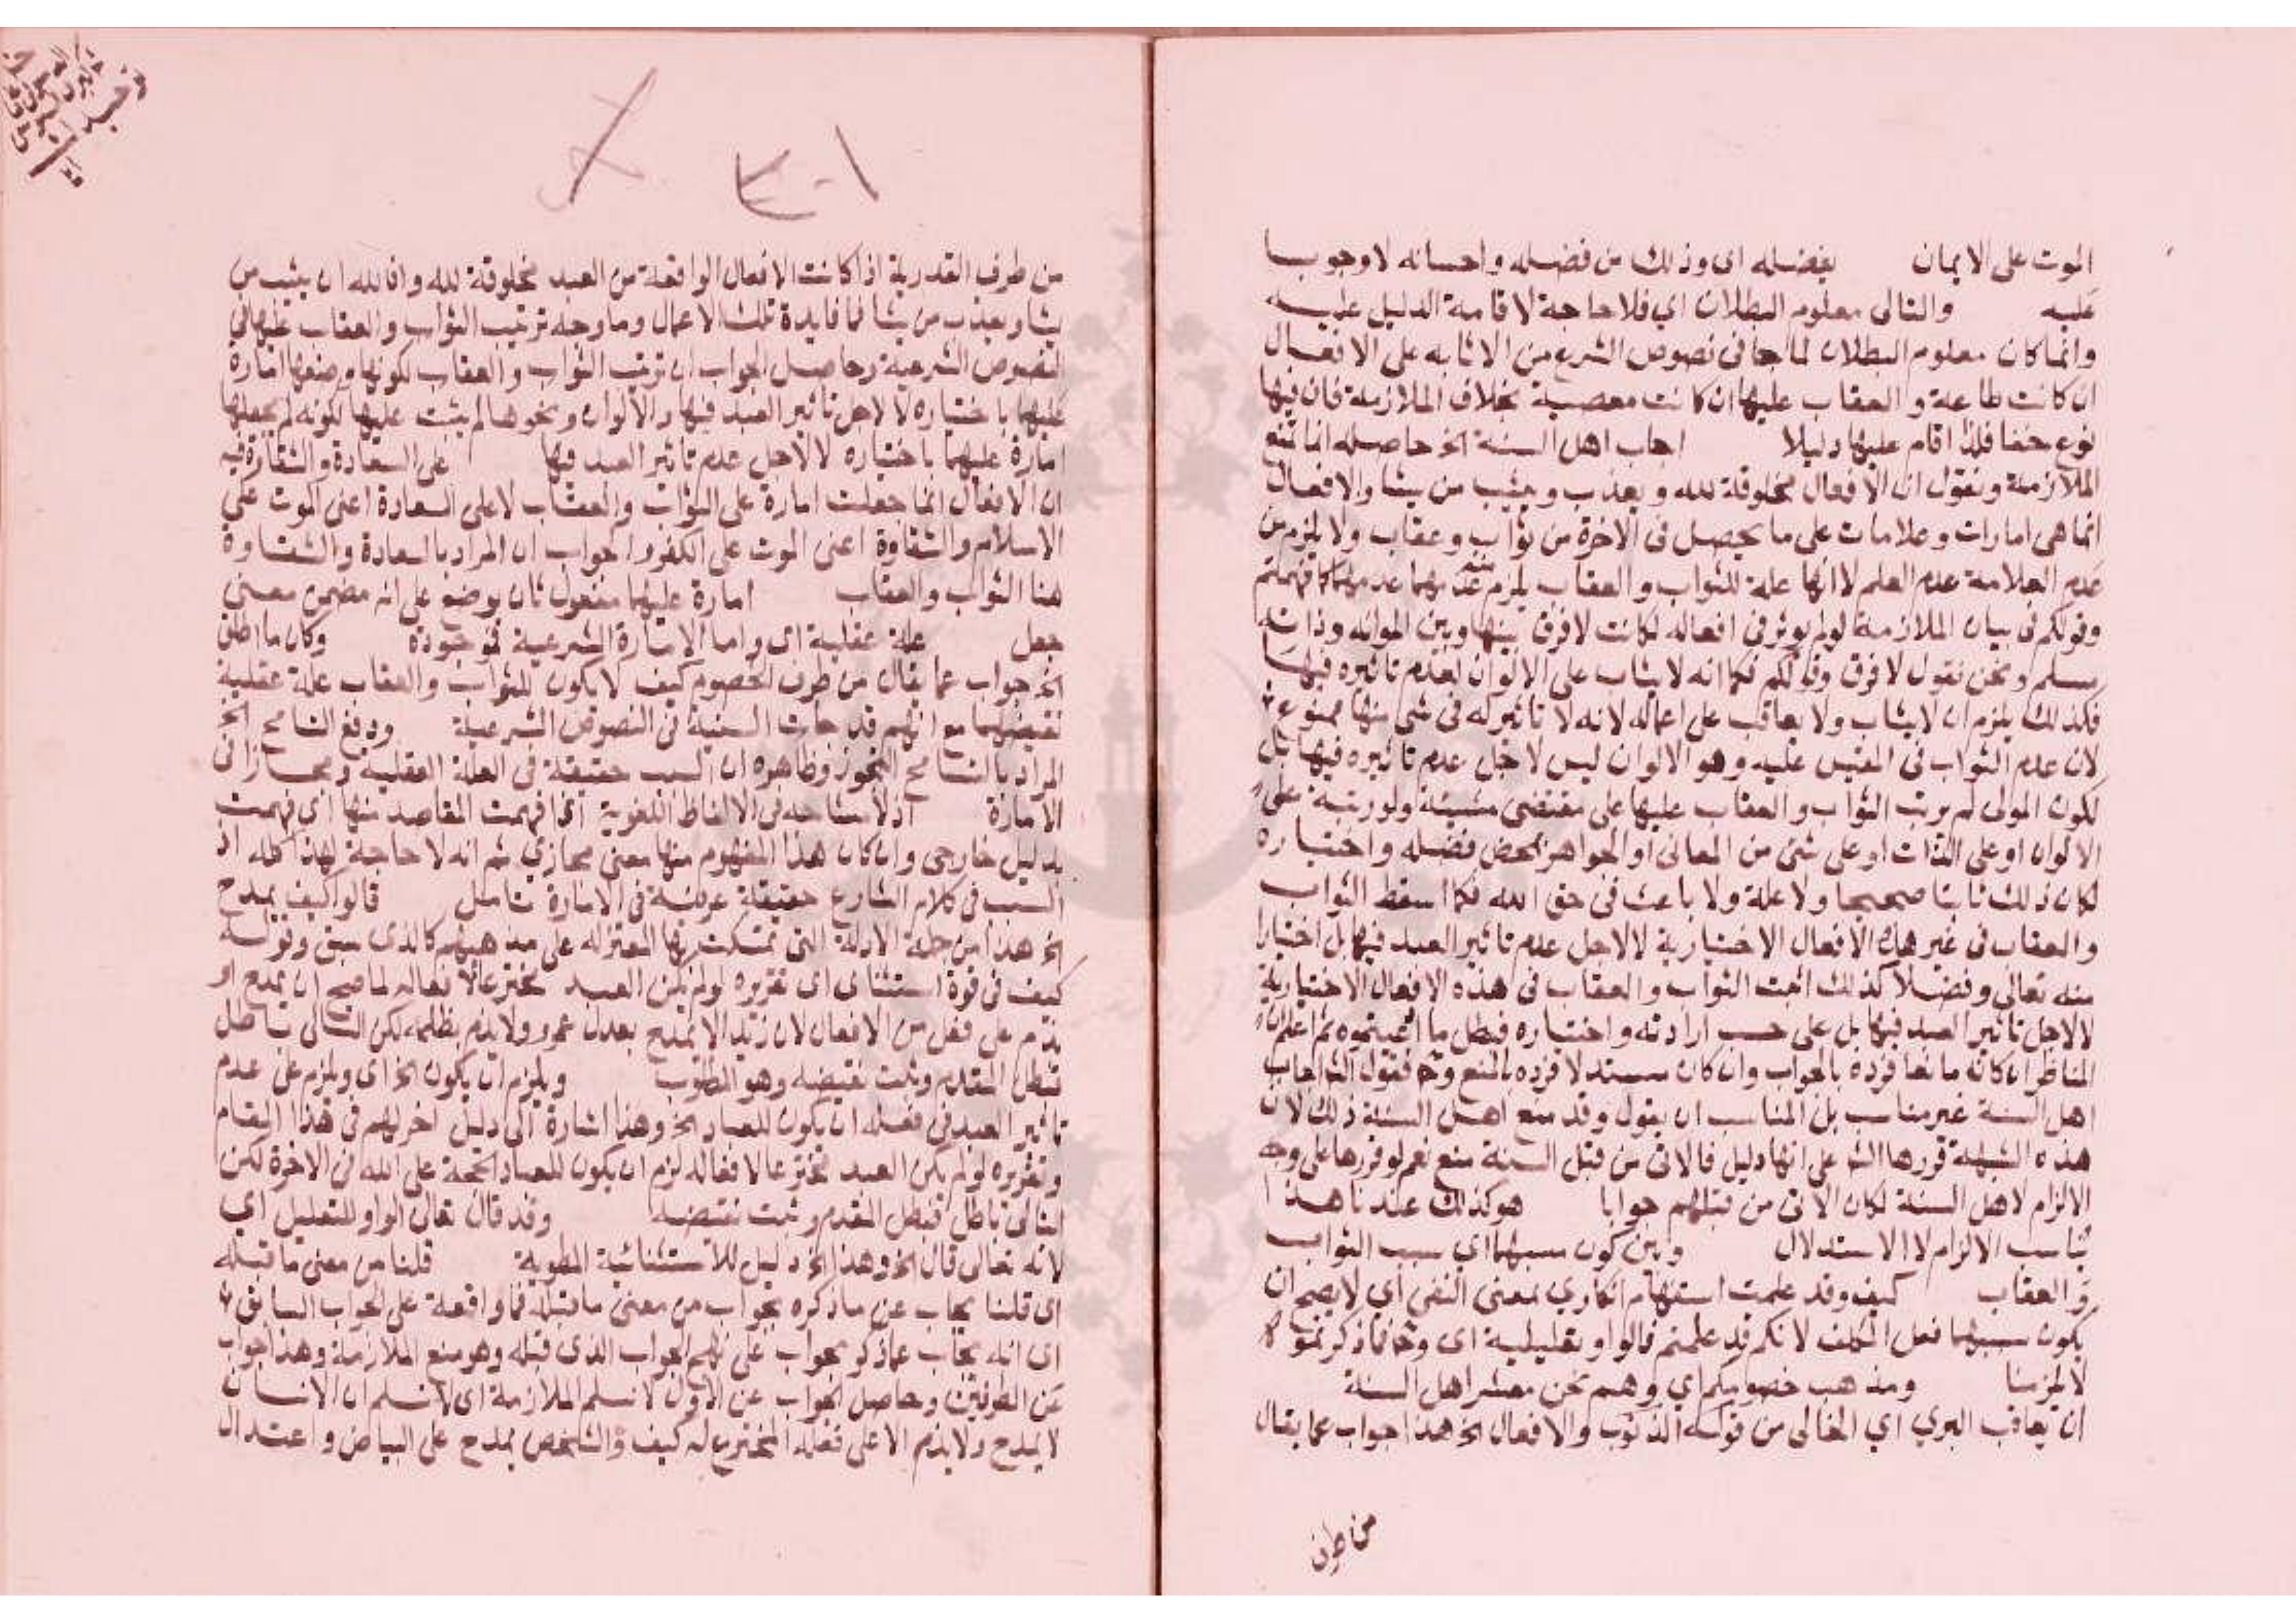 الموت على الايمان بفضله اى وذلك من فضله واحسانه لا وجوبا
عليه والتالى معلوم البطلان اي فلا حاجة لاقامة الدليل عليه
وانما كان معلوم البطلان لما جا فى نصوص الشرع من الاثابه على الافعال
ان كانت طاعة والعقاب عليها ان كانت معصية بخلاف الملازمة فان فيها
نوع خفا فلذا اقام عليها دليلا اجاب اهل السنة الخ حاصله انا نمنع
الملازمة ونقول ان الافعال مخلوقة لله ويعذب ويثيب من يشا والافعال
انما هى امارات وعلامات على ما يحصل فى الاخرة من ثواب وعقاب ولا يلزم من
عدم العلامة عدم العلم لا انها علة للثواب والعقاب يلزم من عدمها عدمهما كما فهمتم
وقولكم فى بيان الملازمة لو لم يوثر فى افعاله لكانت لا فرق بينها وبين الوانه وذاته
مسلم ونحن نقول لا فرق وقولكم فكما انه لا يثاب على الالوان لعدم تاثيره فيها
فكذلك يلزم ان لا يثاب ولا يعاقب على اعماله لانه لا تاثير له فى شى منها ممنوع
لان عدم الثواب فى المقيس عليه وهو الالوان ليس لاجل عدم تاثيره فيها بل
لكون المولى لم يرتب الثواب والعقاب عليها على مقتضى مشيئة ولو رتبه على
الالوان او على الذات او على شئ من المعانى او الجواهر بمحض فضله واختياره
لكان ذلك ثابتا صحيحا ولا علة ولا باعث فى حق الله فكما اسقط الثواب
والعقاب فى غير هذه الافعال الاختيارية لا لاجل عدم تاثير العبد فيها بل اختيارا
منه تعالى وفضلا كذلك اثبت الثواب والعقاب فى هذه الافعال الاختيارية
لا لاجل تاثير العبد فيها بل على حسب ارادته واختياره فبطل ما ادعيتموه ثم اعلم ان
المناظر ان كان مانعا فرده بالجواب وان كان مستدلا فرده بالمنع وح فقول الش اجاب
اهل السنة غير مناسب بل المناسب ان يقول وقد منع اهل السنة ذلك لان
هذه الشبهة قررها الش على انها دليل فالاتى من قبل السنة منع نعم لو قررها على وجه
الالزام لاهل السنة لكان الاتى من قبلهم جوابا هو كذلك عندنا هذا
يناسب الالزام لا الاستدلال وبين كون سببهما اي سبب الثواب
والعقاب كيف وقد علمت استفهام انكاري بمعنى النفى اي لا يصح ان
يكون سببهما فعل المكلف لانكم قد علمتم فالواو تعليلية اى وح فما ذكرتموه
لا يلزمنا ومذهب خصومكم اي وهم نحن معشر اهل السنة
ان يعاقب البري اي الخالى من قوله الذنوب والافعال الخ هذا جواب عما يقال
من طرف
من طرف القدرية اذا كانت الافعال الواقعة من العبد مخلوقة لله وان لله ان يثيب من
يشا ويعذب من يشا فما فايدة تلك الاعمال وما وجه ترتيب الثواب والعقاب عليها فى
النصوص الشرعية وحاصل الجواب ان ترتب الثواب والعقاب لكونها وضعها امارة
عليها باختياره لا لاجل تاثير العبد فيها والالوان ونحوها لم يثبت عليها لكونه لم يجعلها
امارة عليهما باختياره لا لاجل عدم تاثير العبد فيها على السعادة والشقاوة فيه
ان الافعال انما جعلت امارة على الثواب والعقاب لا على السعادة اعنى الموت على
الاسلام والشقاوة اعنى الموت على الكفر والجواب ان المراد بالسعادة والشقاوة
هنا الثواب والعقاب امارة عليهما مفعول ثان بوضع على انه مضمن معنى
جعل علة عقلية اى واما الامارة الشرعية فموجودة وكان ما اطلق
الخ جواب عما يقال من طرف الخصوم كيف لا يكون للثواب والعقاب علة عقلية
تقتضيهما مع انهم قد جات السببية فى النصوص الشرعية ودفع التسامح الخ
المراد بالتسامح التجوز وظاهره ان السبب حقيقة فى العلة العقلية ومجازا فى
الامارة اذ لا مشاحه فى الالفاظ اللغوية اذا فهمت المقاصد منها اى فهمت
بدليل خارجى وان كان هذا المفهوم منها معنى مجازي ثم انه لا حاجة لهذا كله اذ
السبب فى كلام الشارع حقيقة عرفية فى الامارة تامل قالوا كيف يمدح
الخ هذا من جملة الادلة التى تمسكت بها المعتزله على مذهبهم كالذى سبق وقوله
كيف فى قوة استثنائى اى تقريره لو لم يكن العبد مخترعا لافعاله لما صح ان يمدح او
يذم على فعل من الافعال لان زيدا لا يمدح بعدل عمرو ولا يذم بظلمه لكن التالى باطل
فبطل المقدم وثبت نقيضه وهو المطلوب ويلزم ان يكون الخ اى ويلزم على عدم
تاثير العبد فى فعله ان يكون للعباد الخ وهذا اشارة الى دليل اخر لهم فى هذا المقام
وتقريره لو لم يكن العبد مخترعا لافعاله لزم ان يكون للعباد الحجة على الله فى الاخرة لكن
التالى باطل فبطل المقدم وثبت نقيضه وقد قال تعالى الواو للتعليل اي
لانه تعالى قال الخ وهذا الخ دليل للاستثنائية المطوية قلنا من معنى ما قبله
اى قلنا يجاب عن ما ذكره بجواب من معنى ما قبله فما واقعة على الجواب السابق
اى انه يجاب عما ذكر بجواب على نهج الجواب الذى قبله وهو منع الملازمة وهذا جواب
عن الطرفين وحاصل الجواب عن الاول لا نسلم الملازمة اى لا نسلم ان الانسان
لا يمدح ولا يذم الا على فعله المخترع له كيف والشخص يمدح على البياض واعتدال